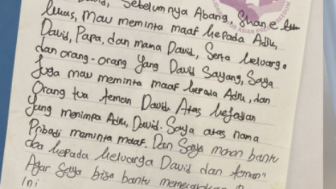 Sebelumnya Abang, Shane
Lukas, Mau meminta maaf kepada Adik,
David, Papa, dan mama David, Serta keluarga
dan orang-orang Yang David Sayang, Saya
Juga mau meminta maaf kepada Adik, dan
Orang tua teman David Atas kejadian
Yang menimpa Adik, David. Saya atas nama
Pribadi meminta maaf. Dan Saya mohon bantu
doa kepada keluarga David dan teman
Agar Saya bisa bantu
Ini